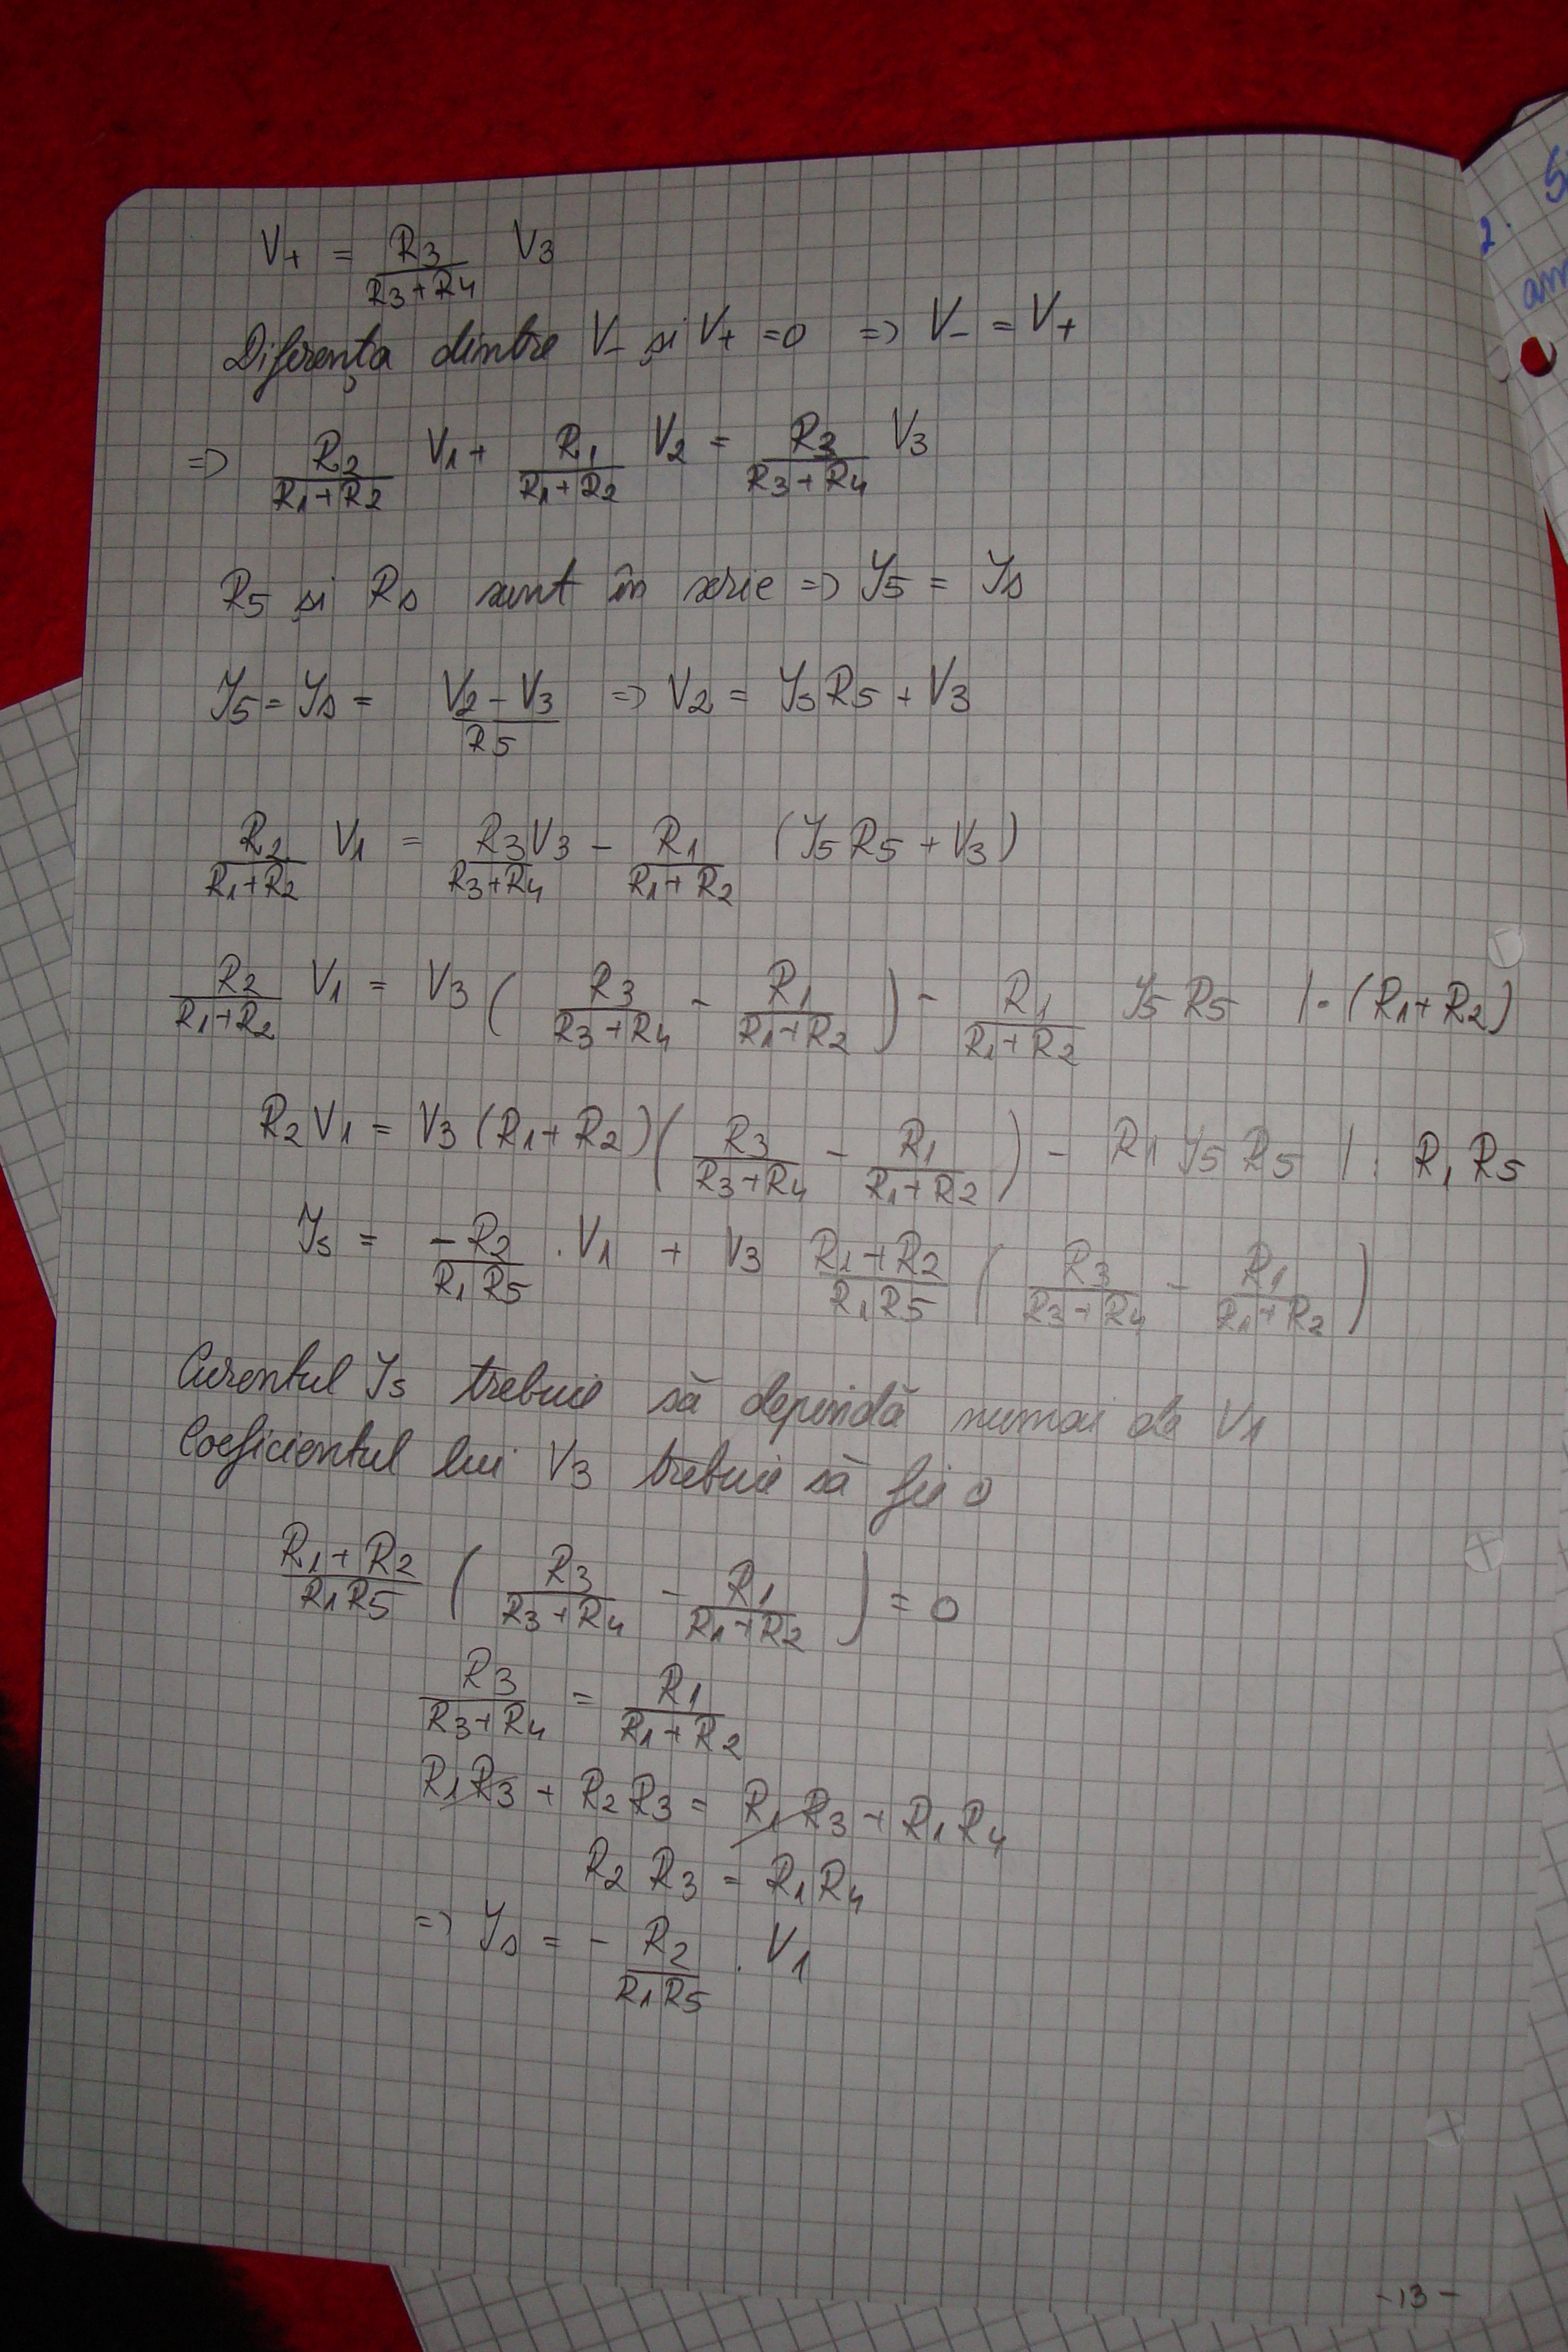 V+ = R3/(R3+R4) V3
Diferența dintre V- și V+ = 0 => V- = V+
=> R2/(R1+R2) V1 + R1/(R1+R2) V2 = R3/(R3+R4) V3
R5 și Rs sunt în serie => I5 = Is
I5 = Is = (V2 - V3)/R5 => V2 = I5 R5 + V3
R2/(R1+R2) V1 = R3V3/(R3+R4) - R1/(R1+R2) (I5 R5 + V3)
R2/(R1+R2) V1 = V3 ( R3/(R3+R4) - R1/(R1+R2) ) - R1/(R1+R2) I5 R5 | · (R1+R2)
R2 V1 = V3 (R1+R2) ( R3/(R3+R4) - R1/(R1+R2) ) - R1 I5 R5 | : R1 R5
Is = -R2/(R1 R5) · V1 + V3 (R1+R2)/(R1R5) ( R3/(R3+R4) - R1/(R1+R2) )
Curentul Is trebuie să depindă numai de V1
Coeficientul lui V3 trebuie să fie 0
(R1+R2)/(R1R5) ( R3/(R3+R4) - R1/(R1+R2) ) = 0
R3/(R3+R4) = R1/(R1+R2)
R1R3 + R2R3 = R1R3 + R1R4
R2 R3 = R1R4
=> Is = - R2/(R1R5) · V1
-13-
2.
am